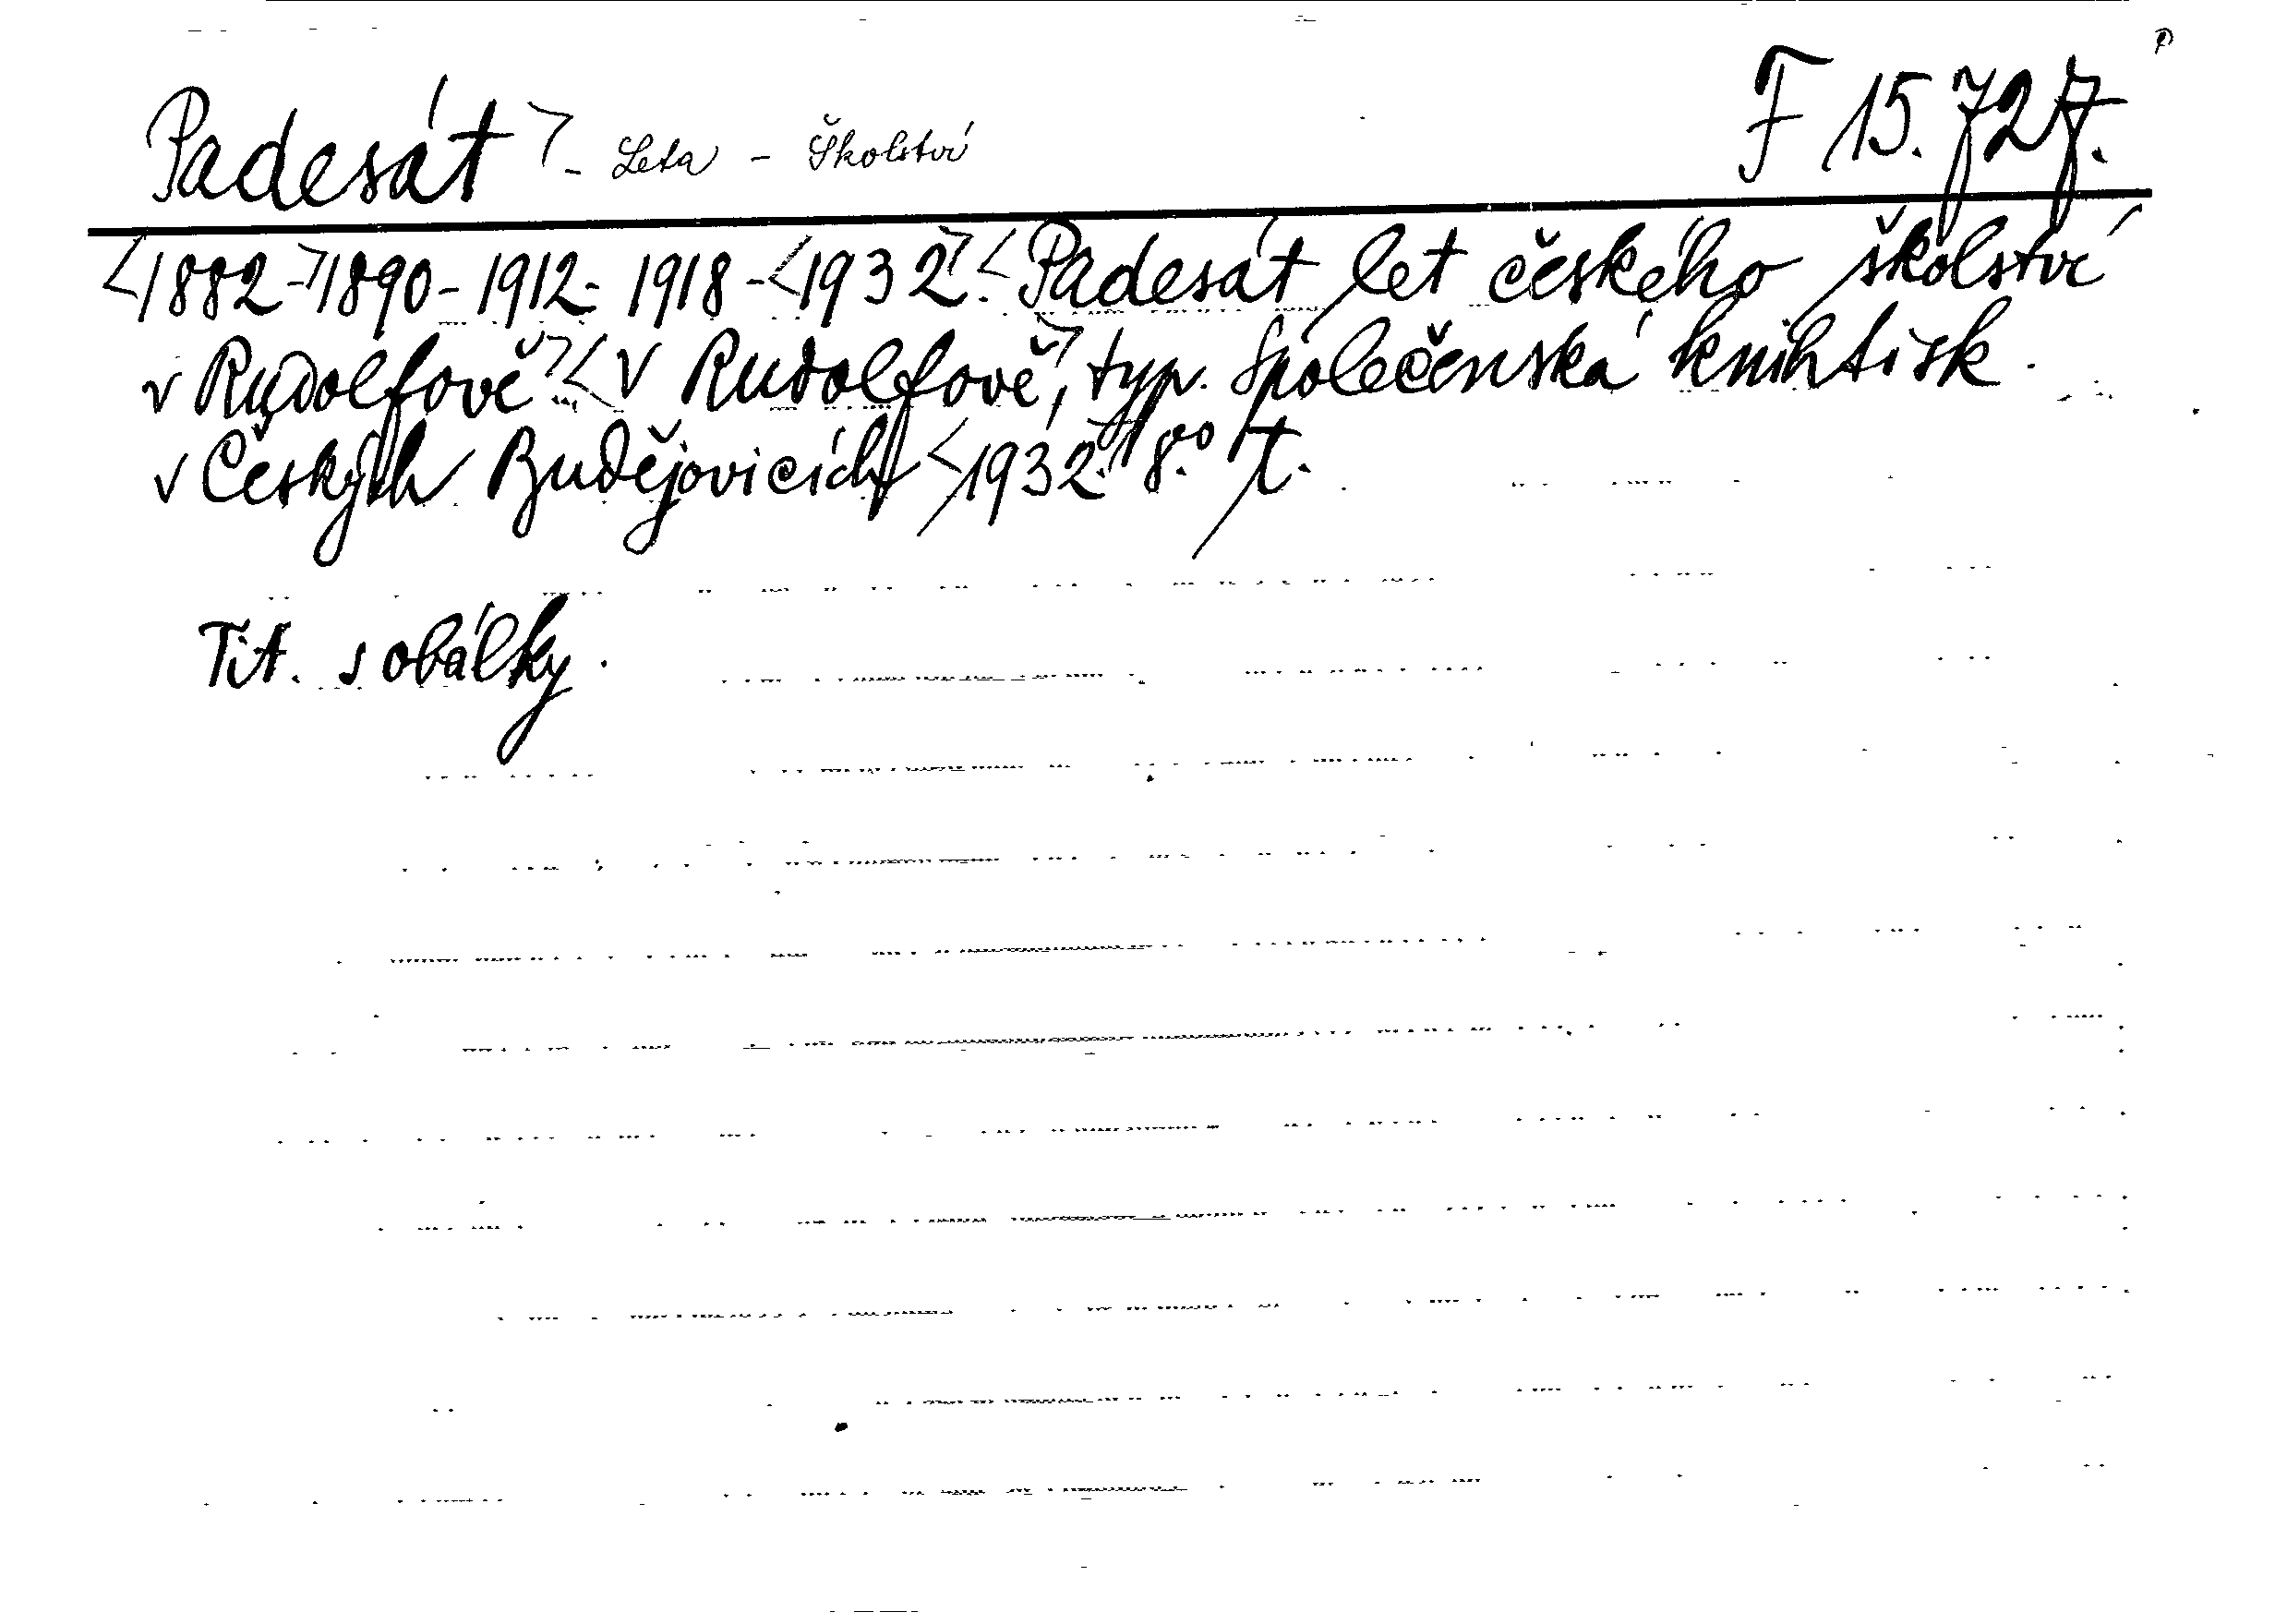 Padesát> - Leta - Školství F 15.727.
<1882->1890-1912-1918-<1932.> <Padesát let českého školství
v Rudolfově.> <V Rudolfově>, typ. Společenská knihtisk.
v Českých Budějovicích <1932.> 8.° T.
Tit. s obálky.